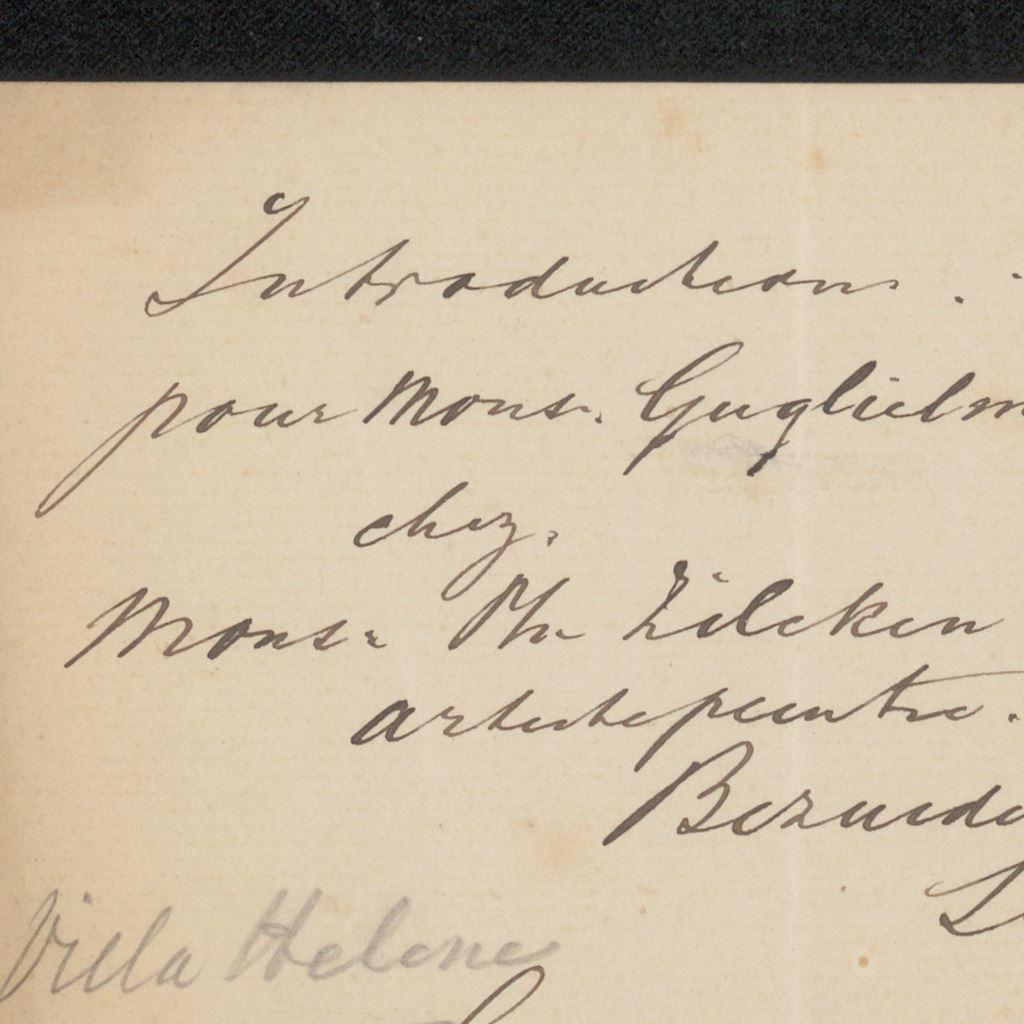 Introduction.
pour Mons. Guglielm
chez.
Mons. Ph. Zilcken
artistepeintre.
Bezuide
Villa Helene